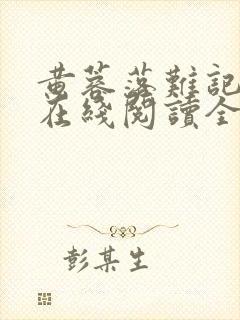 黄蓉落難記
在綫閱讀全
彭某生